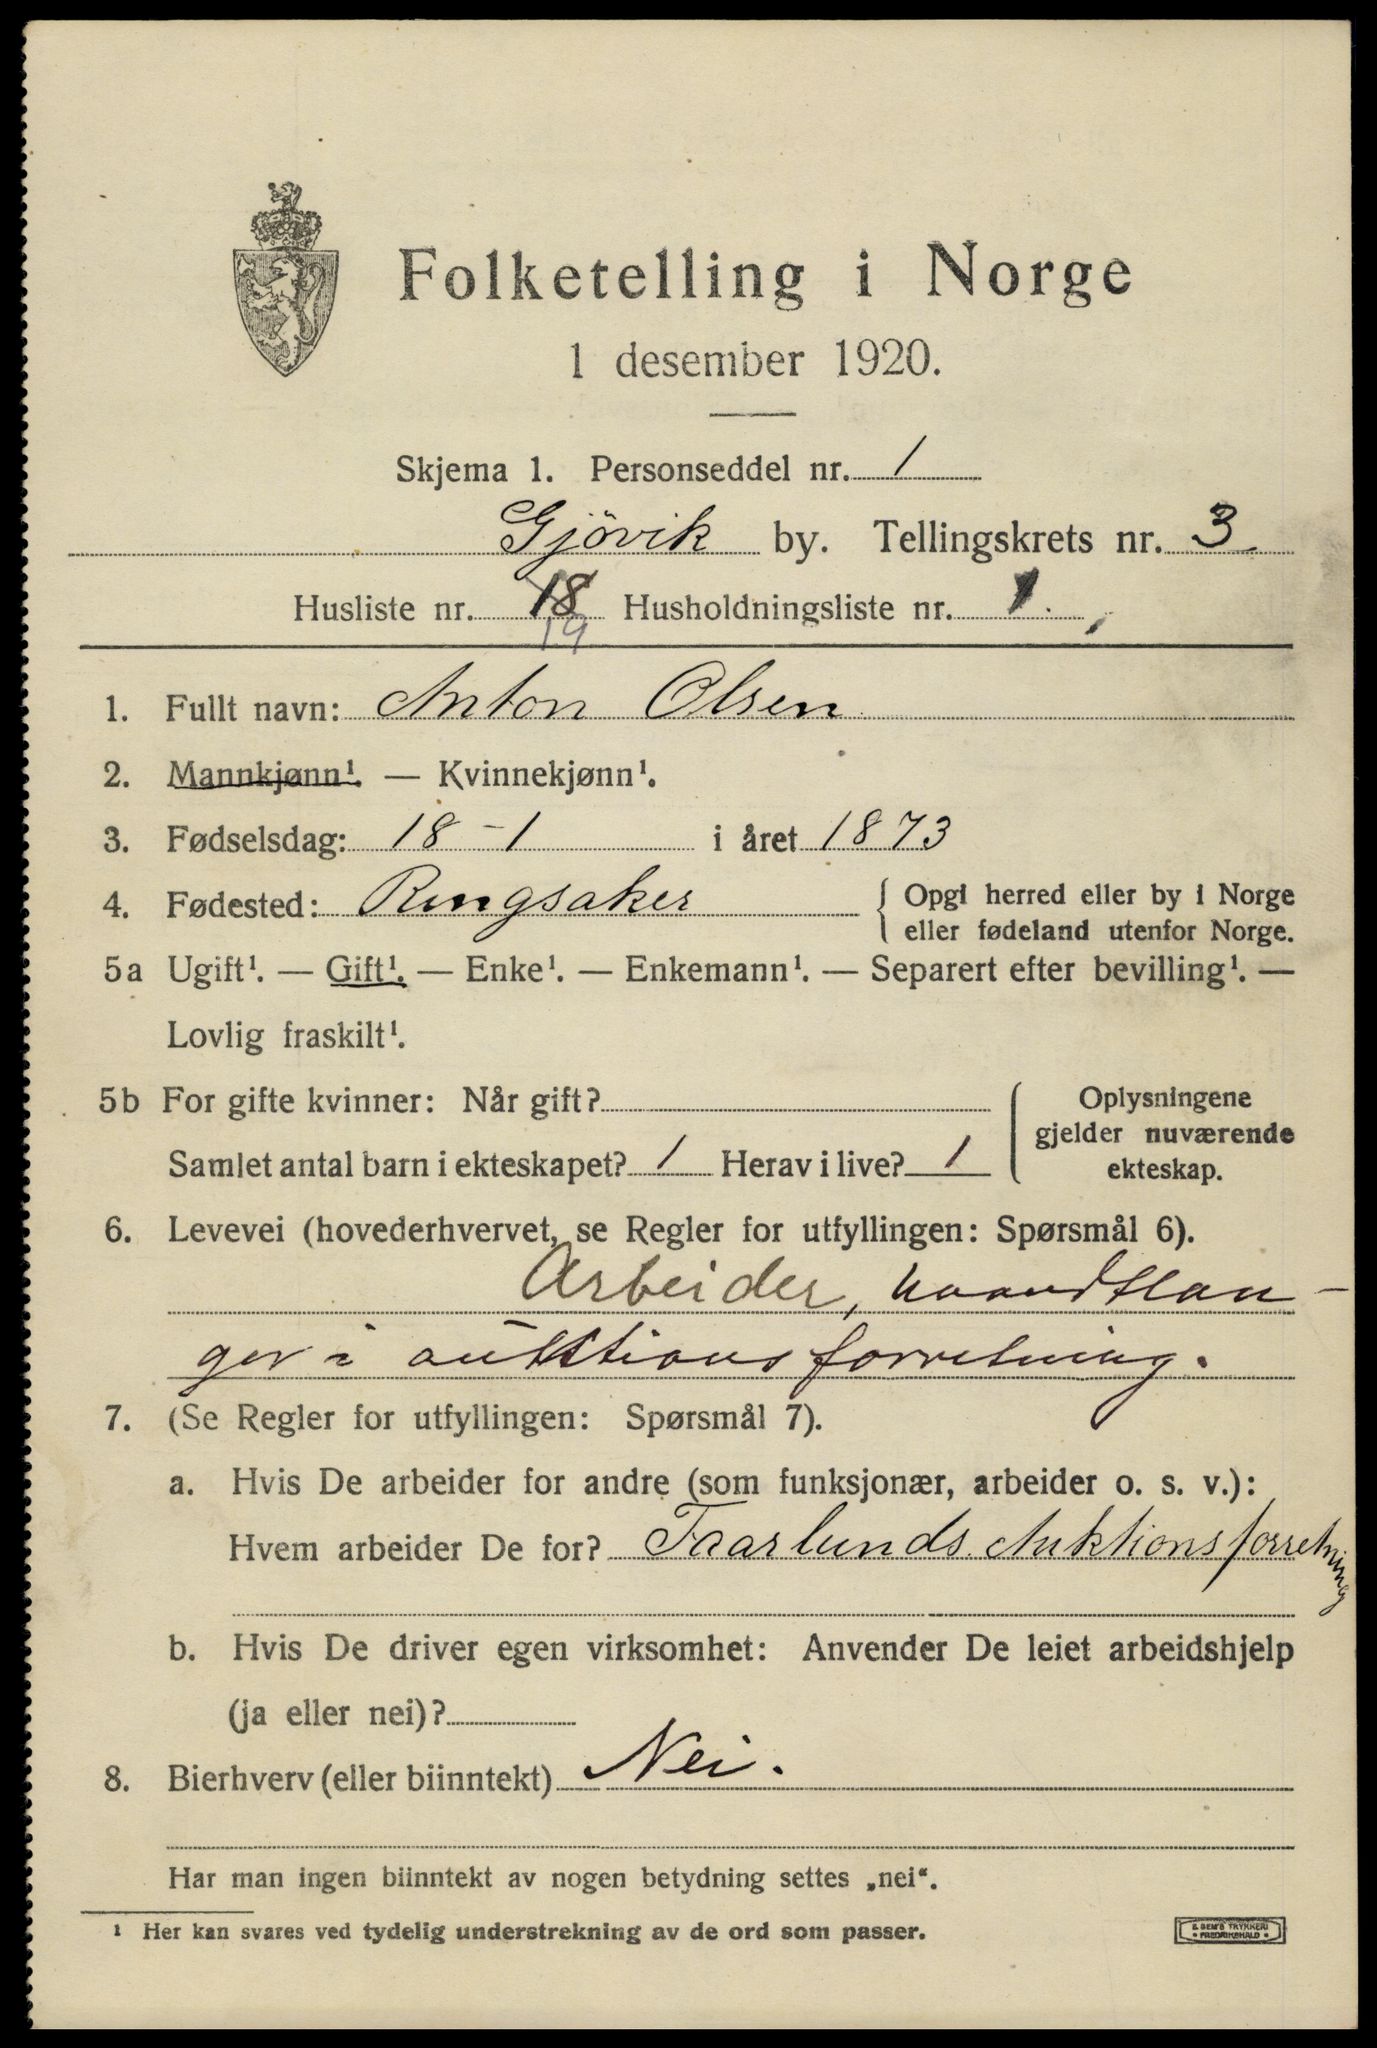 Folketelling i Norge
1 desember 1920.
Skjema 1. Personseddel nr. 1
Gjövik by. Tellingskrets nr. 3
Husliste nr. 18 Husholdningsliste nr. 1.
19
1. Fullt navn: Anton Olsen
2. Mannkjønn¹. — Kvinnekjønn¹.
3. Fødselsdag: 18-1 i året 1873
4. Fødested: Ringsaker { Opgi herred eller by i Norge
eller fødeland utenfor Norge.
5a Ugift¹. — Gift¹. — Enke¹. — Enkemann¹. — Separert efter bevilling¹. —
Lovlig fraskilt¹.
5b For gifte kvinner: Når gift? Oplysningene
gjelder nuværende
Samlet antal barn i ekteskapet? 1 Herav i live? 1 ekteskap.
6. Levevei (hovederhvervet, se Regler for utfyllingen: Spørsmål 6).
Arbeider, haandtlan-
ger i auktionsforretning.
7. (Se Regler for utfyllingen: Spørsmål 7).
a. Hvis De arbeider for andre (som funksjonær, arbeider o. s. v.):
Hvem arbeider De for? Faarlunds Auktionsforretning
b. Hvis De driver egen virksomhet: Anvender De leiet arbeidshjelp
(ja eller nei)?
8. Bierhverv (eller biinntekt) Nei.
Har man ingen biinntekt av nogen betydning settes „nei“.
¹ Her kan svares ved tydelig understrekning av de ord som passer.
E SEM'S TRYKKERI
• FREDRIKSHALD •